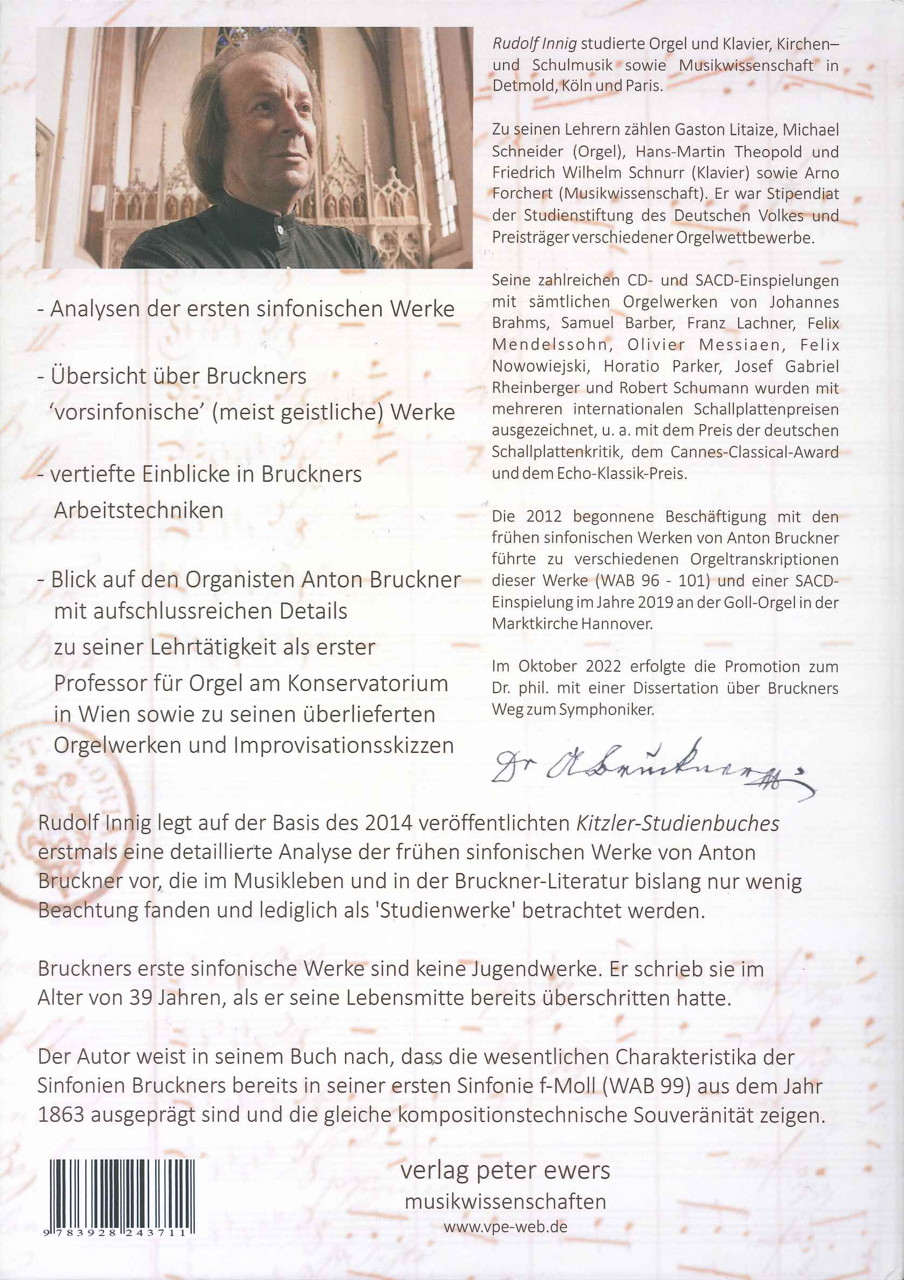 Rudolf Innig studierte Orgel und Klavier, Kirchen–
und Schulmusik sowie Musikwissenschaft in
Detmold, Köln und Paris.
Zu seinen Lehrern zählen Gaston Litaize, Michael
Schneider (Orgel), Hans-Martin Theopold und
Friedrich Wilhelm Schnurr (Klavier) sowie Arno
Forchert (Musikwissenschaft). Er war Stipendiat
der Studienstiftung des Deutschen Volkes und
Preisträger verschiedener Orgelwettbewerbe.
Seine zahlreichen CD- und SACD-Einspielungen
mit sämtlichen Orgelwerken von Johannes
Brahms, Samuel Barber, Franz Lachner, Felix
Mendelssohn, Olivier Messiaen, Felix
Nowowiejski, Horatio Parker, Josef Gabriel
Rheinberger und Robert Schumann wurden mit
mehreren internationalen Schallplattenpreisen
ausgezeichnet, u. a. mit dem Preis der deutschen
Schallplattenkritik, dem Cannes-Classical-Award
und dem Echo-Klassik-Preis.
Die 2012 begonnene Beschäftigung mit den
frühen sinfonischen Werken von Anton Bruckner
führte zu verschiedenen Orgeltranskriptionen
dieser Werke (WAB 96 - 101) und einer SACD-
Einspielung im Jahre 2019 an der Goll-Orgel in der
Marktkirche Hannover.
Im Oktober 2022 erfolgte die Promotion zum
Dr. phil. mit einer Dissertation über Bruckners
Weg zum Symphoniker.
Dr ABruckner
- Analysen der ersten sinfonischen Werke
- Übersicht über Bruckners
‘vorsinfonische’ (meist geistliche) Werke
- vertiefte Einblicke in Bruckners
Arbeitstechniken
- Blick auf den Organisten Anton Bruckner
mit aufschlussreichen Details
zu seiner Lehrtätigkeit als erster
Professor für Orgel am Konservatorium
in Wien sowie zu seinen überlieferten
Orgelwerken und Improvisationsskizzen
Rudolf Innig legt auf der Basis des 2014 veröffentlichten Kitzler-Studienbuches
erstmals eine detaillierte Analyse der frühen sinfonischen Werke von Anton
Bruckner vor, die im Musikleben und in der Bruckner-Literatur bislang nur wenig
Beachtung fanden und lediglich als 'Studienwerke' betrachtet werden.
Bruckners erste sinfonische Werke sind keine Jugendwerke. Er schrieb sie im
Alter von 39 Jahren, als er seine Lebensmitte bereits überschritten hatte.
Der Autor weist in seinem Buch nach, dass die wesentlichen Charakteristika der
Sinfonien Bruckners bereits in seiner ersten Sinfonie f-Moll (WAB 99) aus dem Jahr
1863 ausgeprägt sind und die gleiche kompositionstechnische Souveränität zeigen.
9 783928 243711
verlag peter ewers
musikwissenschaften
www.vpe-web.de